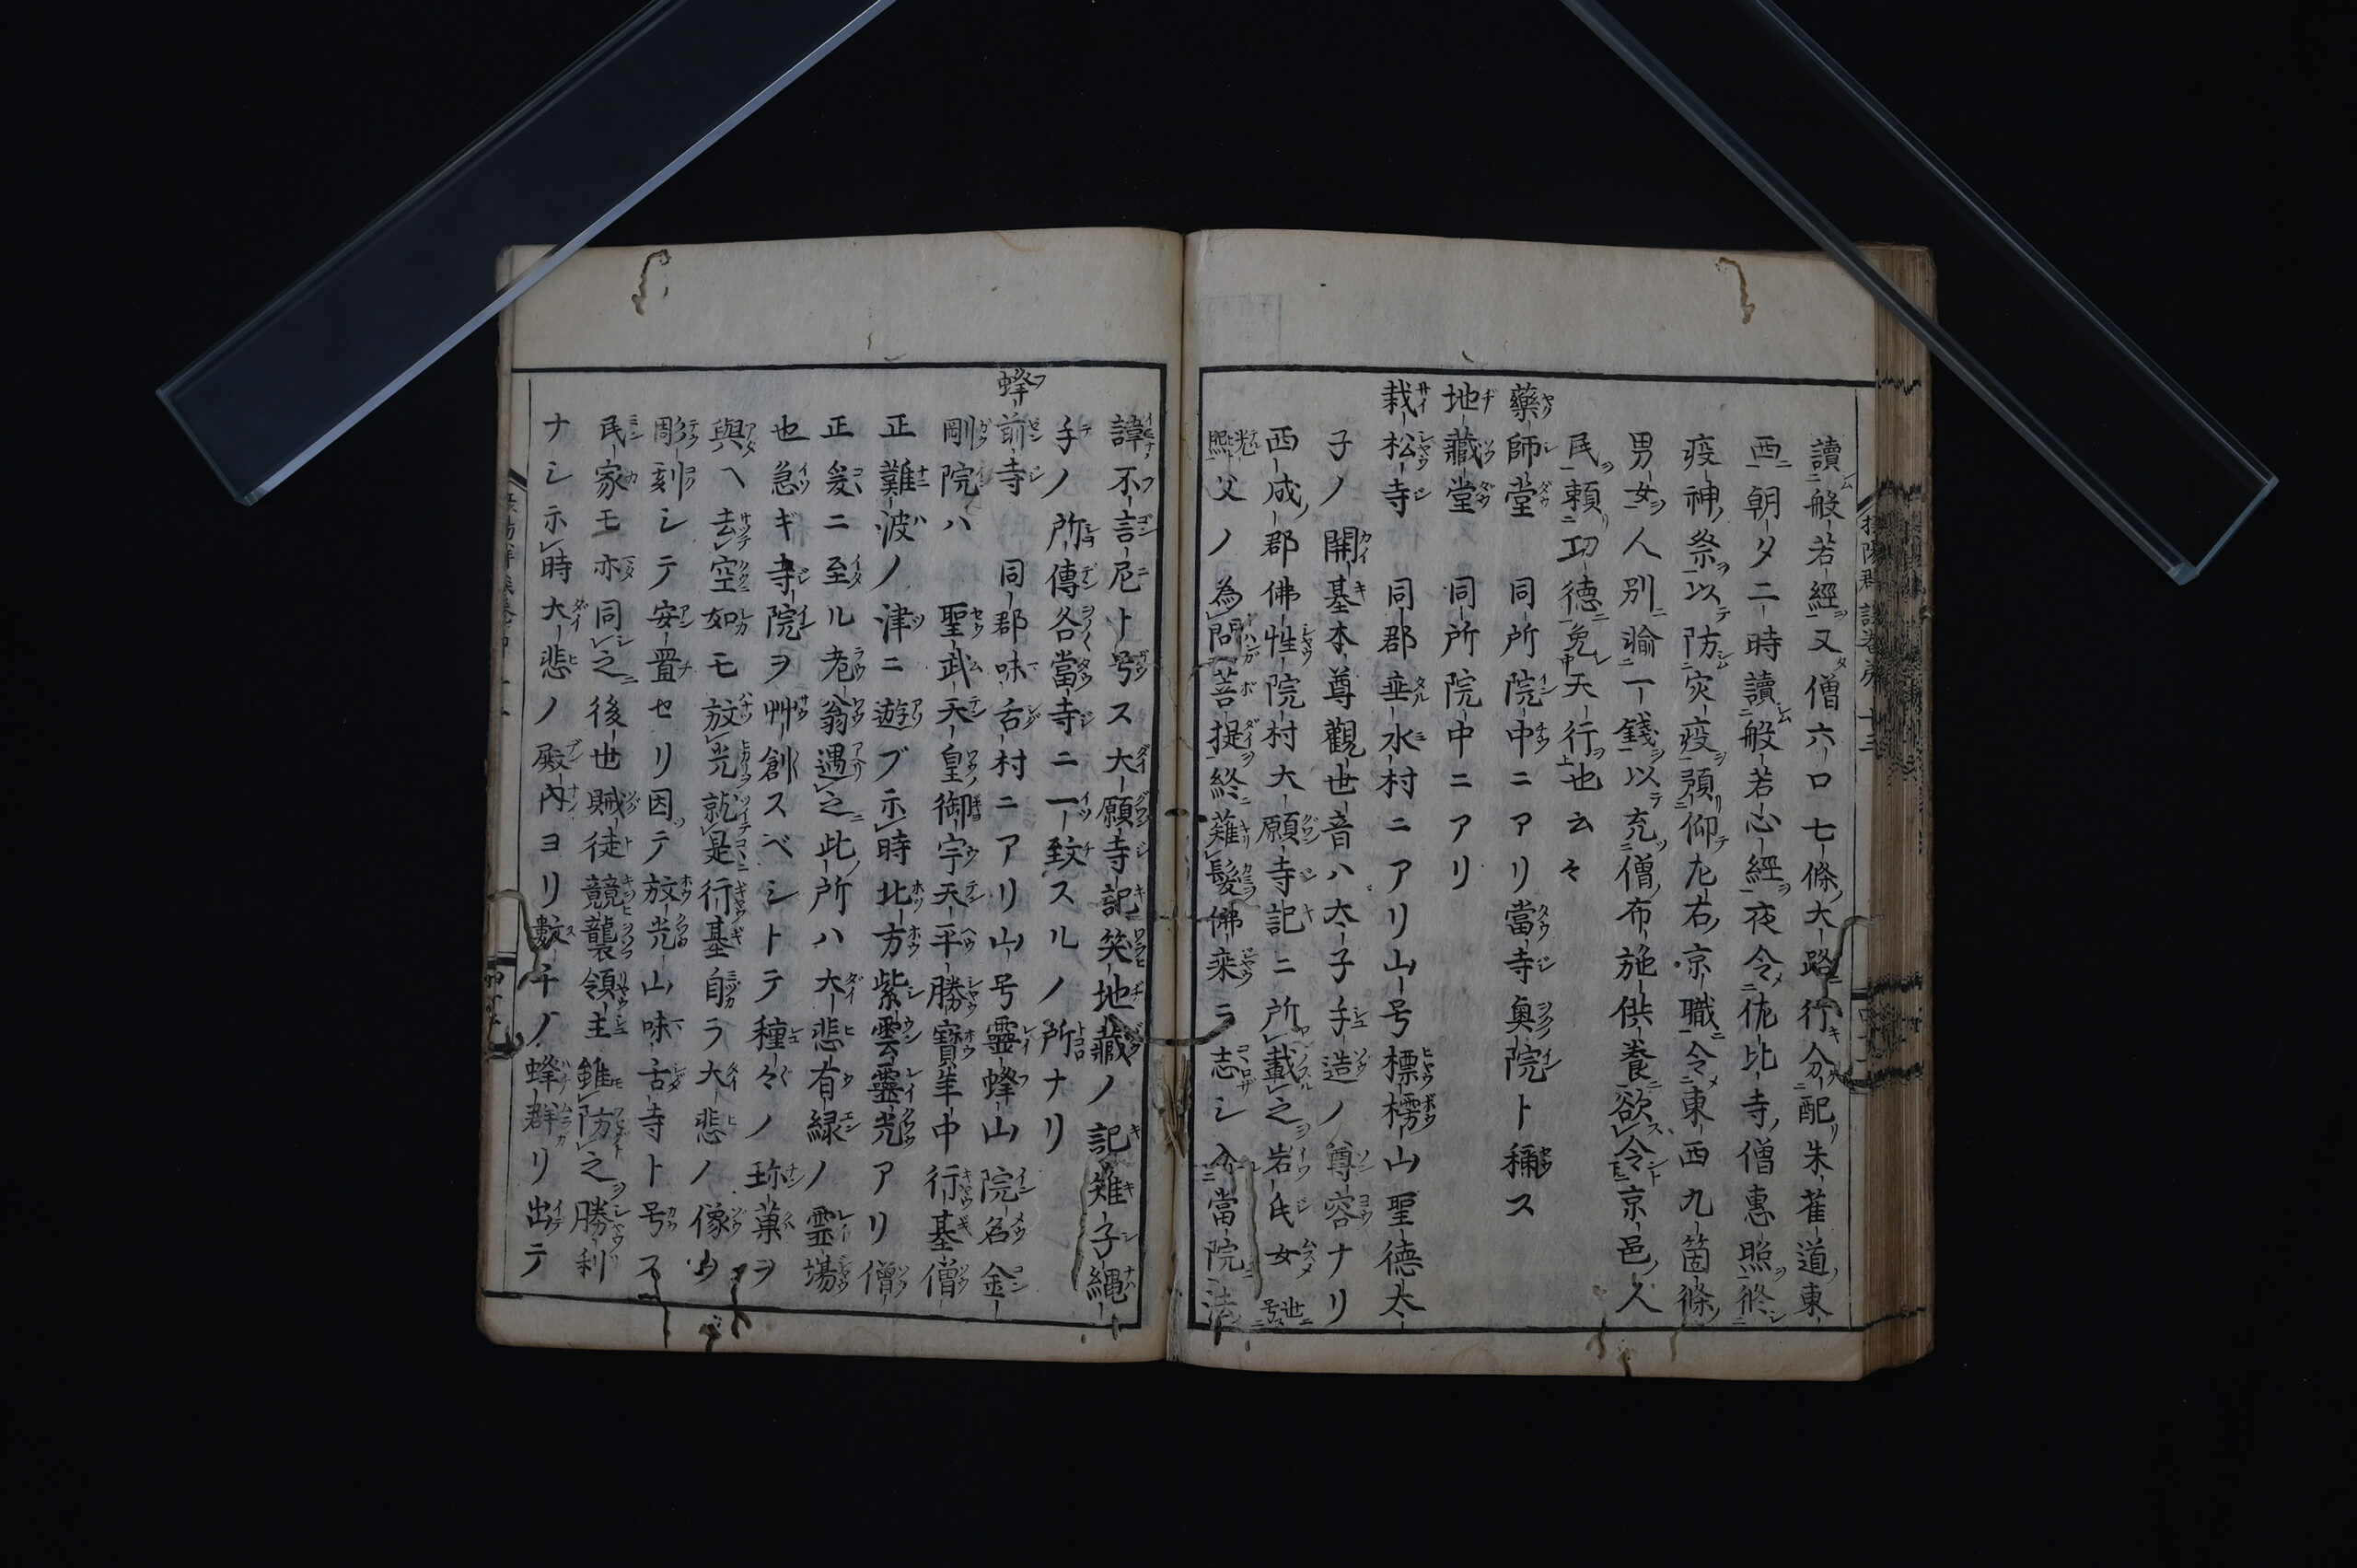 讀般若經又僧六口七條大路行分配朱雀道東
西朝夕二時讀般若心經夜令佐比寺僧惠照修
疫神祭以防灾疫預仰左右京職令東西九箇條
男女人別一錢以充僧布施供養欲令京邑人
民賴功德免天行也云々
藥師堂 同所院中ニアリ當寺奥院ト稱ス
地藏堂 同所院中ニアリ
栽松寺 同郡垂水村ニアリ山号標樗山聖德太
子ノ開基本尊觀世音ハ太子手造ノ尊容ナリ
西成郡佛性院村大願寺記ニ所載之岩氏女
世号
光照
父ノ為問菩提終薙髮佛乘ラ志シ當院
諱不言尼ト号ス大願寺記笑地藏ノ記雉子縄
手ノ所傳各當寺ニ一致スルノ所ナリ
蜂前寺 同郡味舌村ニアリ山号靈蜂山院名金
剛院ハ 聖武天皇御宇天平勝寶年中行基僧
正難波ノ津ニ遊ブ示時北方紫雲靈光アリ僧
正爰ニ至ル老翁遇之此所ハ大悲有緑ノ霊場
也急ギ寺院ヲ艸創スベシトテ種々ノ珎菓ヲ
與ヘ去空如モ放光就是行基自ラ大悲ノ像ヲ
彫刻シテ安置セリ因テ放光山味舌寺ト号ス
民家モ亦同之後世賊徒競襲領主雖防之勝利
ナシ示時大悲ノ殿內ヨリ數千ノ蜂群リ出テ